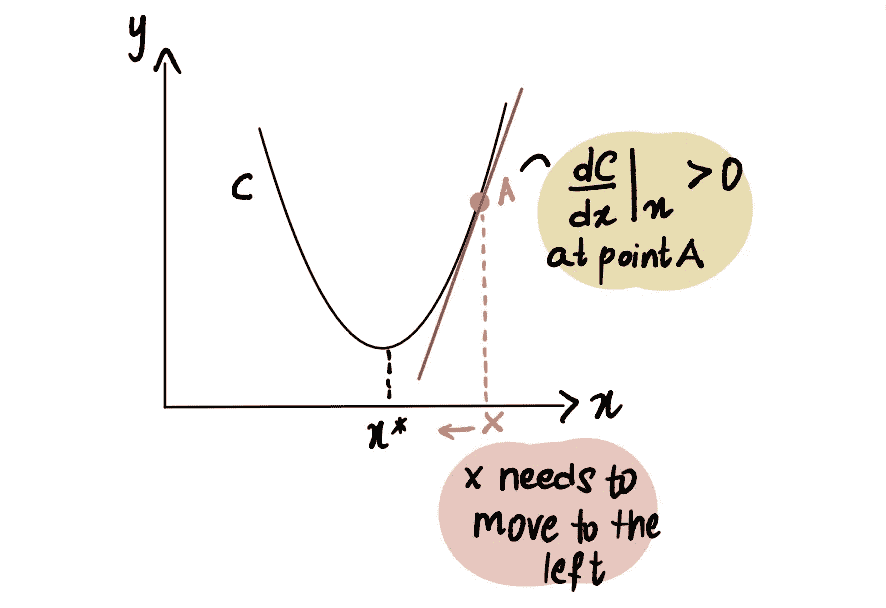 y
C
A
dC
dx | x > 0
at point A
x
x*
← x
x needs to
move to the
left